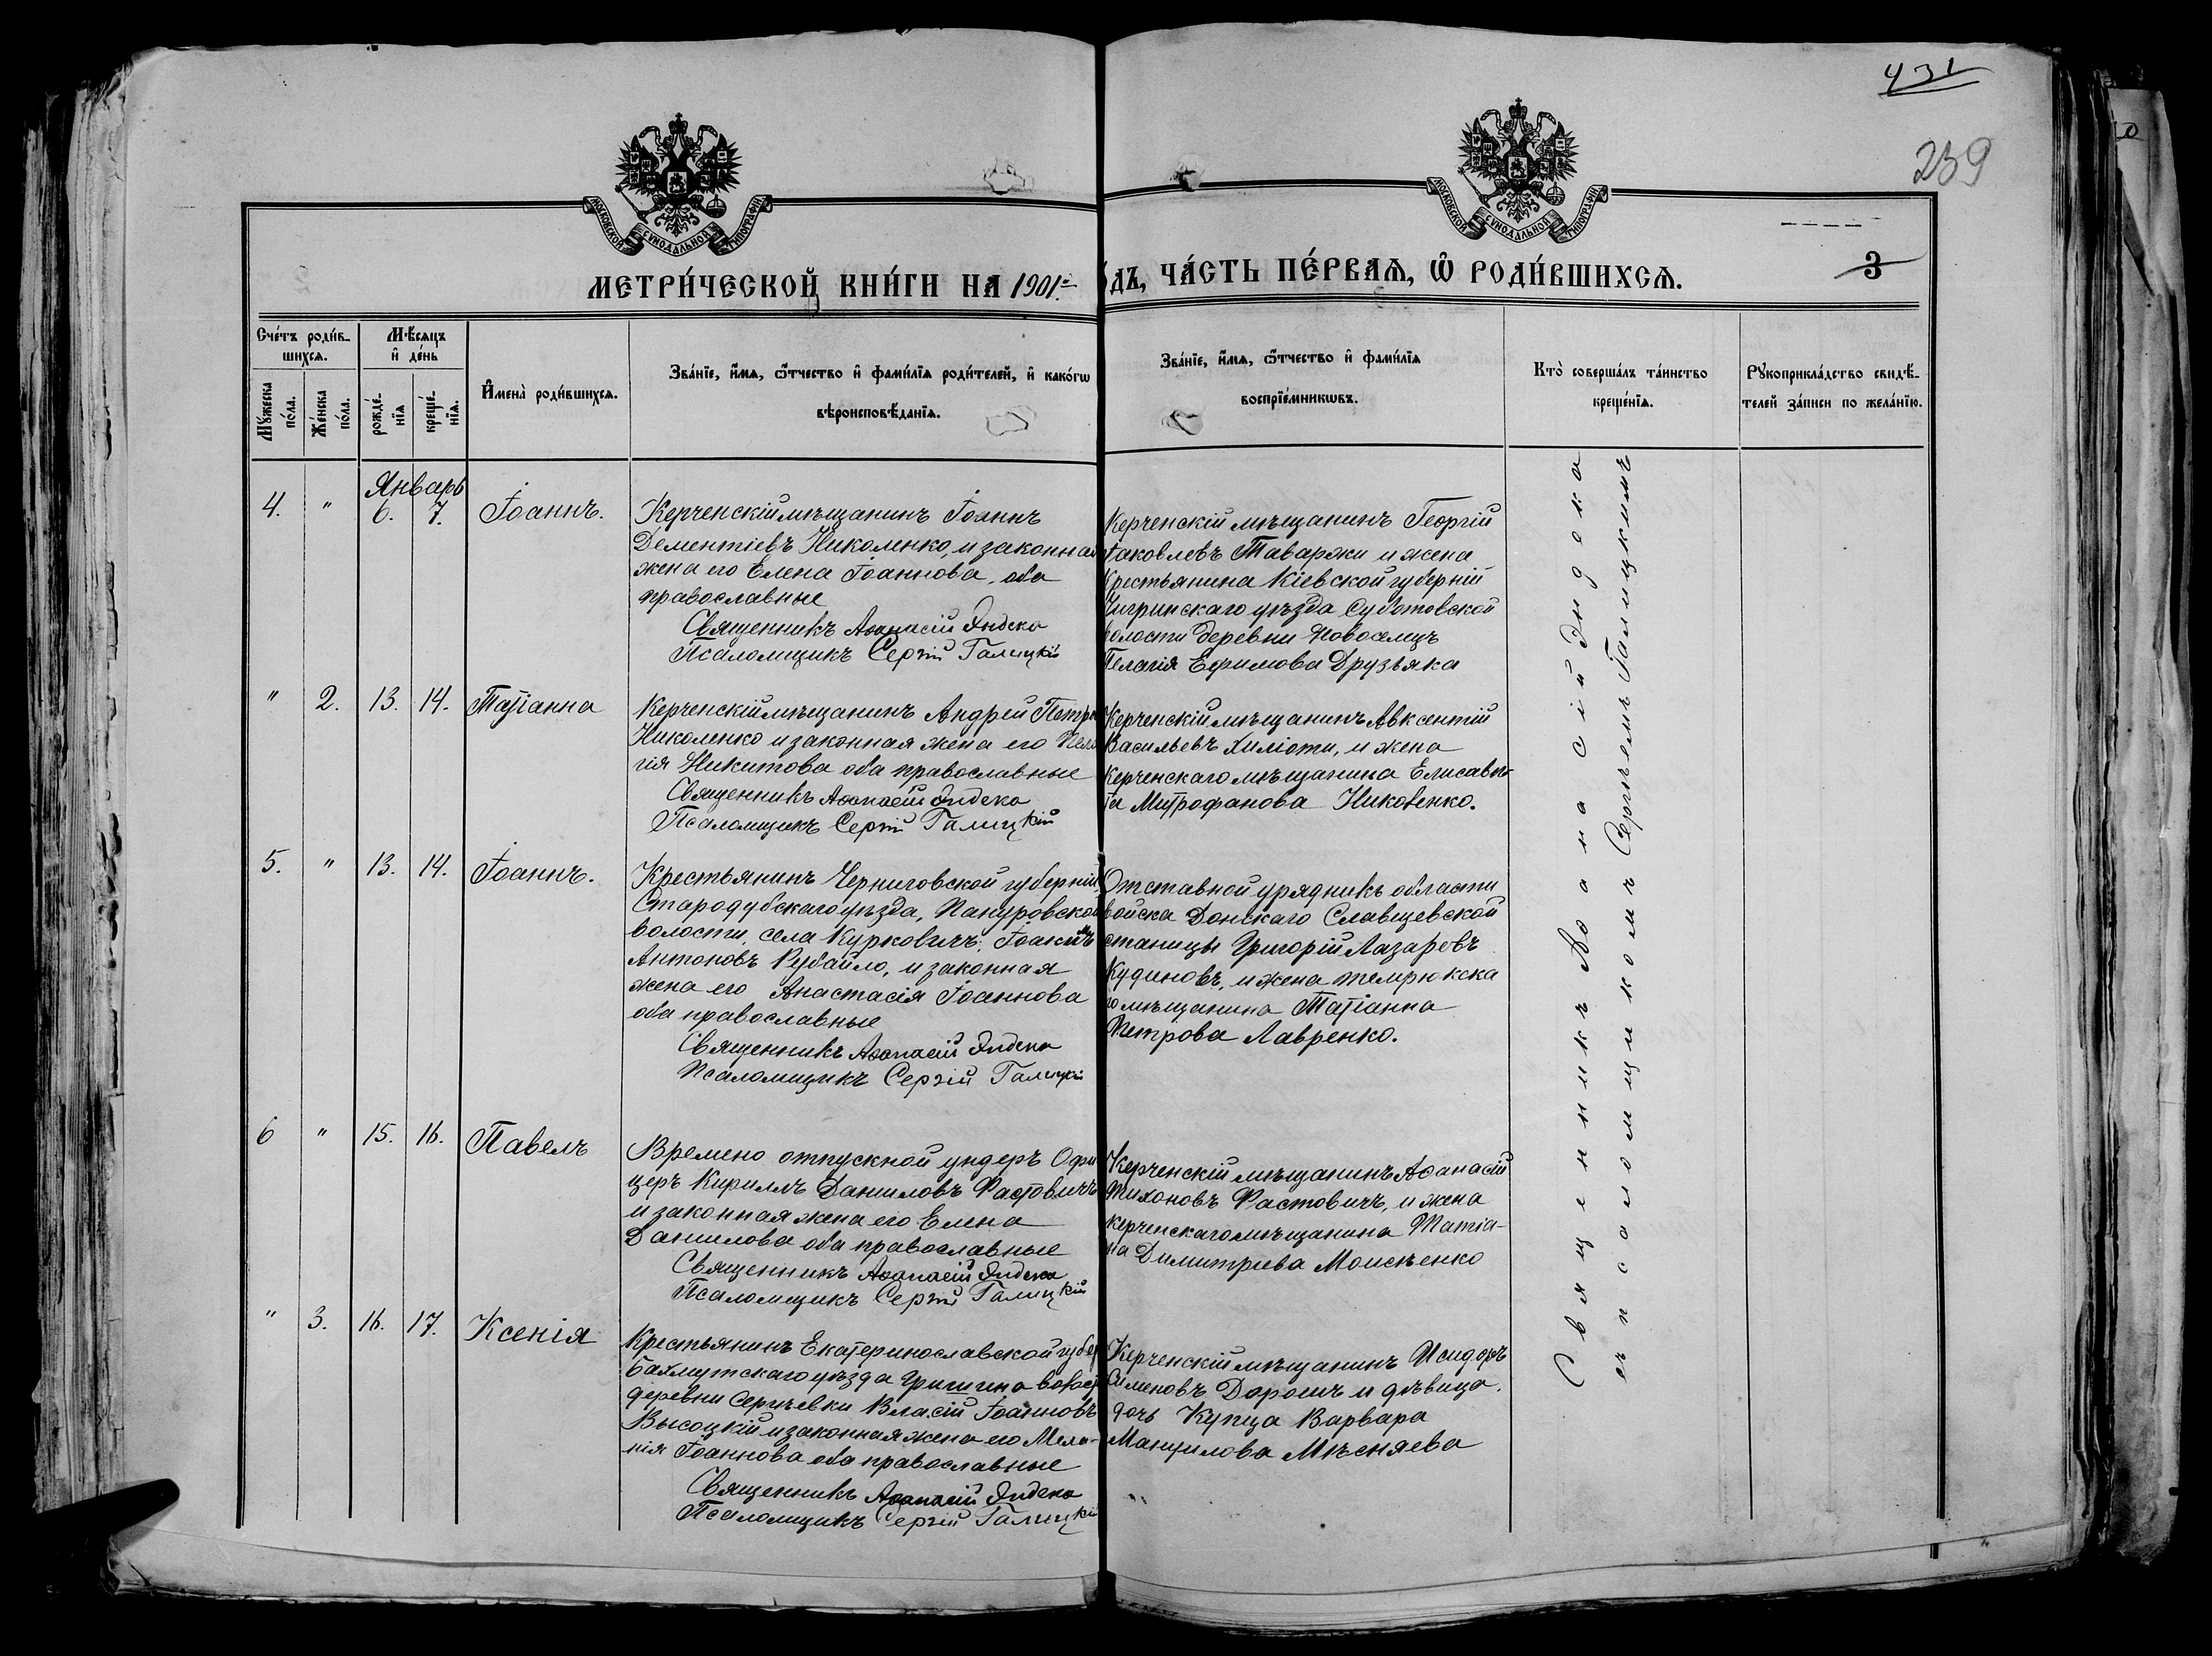 431
239
МОСКОВСКОЙ СѴНОДАЛЬНОЙ ТИПОГРАФІИ
МОСКОВСКОЙ СѴНОДАЛЬНОЙ ТИПОГРАФІИ
МЕТРИ́ЧЕСКОЙ КНИ́ГИ НА 1901.й
ДЪ, ЧА́СТЬ ПЕ́РВАѦ, Ѡ РОДИ́ВШИХСѦ.
3
Сче́тъ роди́в-
шихсѧ.
Мꙋ́жеска по́ла.
Же́нска по́ла.
Мѣ́сѧцъ
и҆ де́нь
рожде́-нїѧ
креще́-нїѧ.
И҆мена̀ роди́вшихсѧ.
Зва́нїе, и҆́мѧ, ѻ҆́тчество и҆ фами́лїѧ роди́телей, и҆ како́гѡ
вѣроисповѣ́данїѧ.
Зва́нїе, и҆́мѧ, ѻ҆́тчество и҆ фами́лїѧ
воспрїе́мникѡвъ.
Кто̀ соверша́лъ та́инство
креще́нїѧ.
Рꙋкоприкла́дство свидѣ́-
телей за́писи по жела́нїю.
Январь
4. " 6. 7. Іоаннъ.
Керченскій мѣщанинъ Іоаннъ
Дементіевъ Николенко, и законная
жена его Елена Іоаннова, оба
православные
Священникъ Аѳанасій Яндека
Псаломщикъ Сергій Галицкій
Керченскій мѣщанинъ Георгій
Іаковлевъ Таваржи и жена
Крестьянина Кіевской губерніи
Чигринскаго уѣзда Субботовской
волости деревни Новоселицъ
Пелагія Ефимова Друзьяка
" 2. 13. 14. Татіанна
Керченскій мѣщанинъ Андрей Петро
Николенко и законная жена его Пела
гія Никитова оба православные
Священникъ Аѳанасій Яндека
Псаломщикъ Сергій Галицкій
Керченскій мѣщанинъ Авксентій
Васильевъ Хиліоти, и жена
Керченскаго мѣщанина Елисаве-
та Митрофанова Николенко.
5. " 13. 14. Іоаннъ.
Крестьянинъ Черниговской губерніи,
Стародубскаго уѣзда, Понуровской
волости, села Курковичъ, Іоакимъ
Антоновъ Рубайло, и законная
жена его Анастасія Іоаннова
оба православные
Священникъ Аѳанасій Яндека
Псаломщикъ Сергій Галицкій
Отставной урядникъ области
войска Донскаго Славщевской
станицы Григорій Лазаревъ
Кудиновъ, и жена темрюкска
го мѣщанина Татіанна
Петрова Лавренко.
6 " 15. 16. Павелъ
Времено отпускной ундеръ Офи
церъ Кириллъ Даниловъ Фастовичъ
и законная жена его Елена
Данилова оба православные
Священникъ Аѳанасій Яндека
Псаломщикъ Сергій Галицкій
Керченскій мѣщанинъ Аѳанасій
Тихоновъ Фастовичъ, и жена
керченскаго мѣщанина Татіа-
на Димитріева Моисѣенко
" 3. 16. 17. Ксенія
Крестьянинъ Екатеринославской губер
Бахмутскаго уѣзда Гришина волос
деревни Сергѣевки Власій Іоанновъ
Высоцкій и законная жена его Мела-
нія Іоаннова оба православные
Священникъ Аѳанасій Яндека
Псаломщикъ Сергій Галицкій
Керченскій мѣщанинъ Исидоръ
Сименовъ Дорошъ и дѣвица,
дочь Купца Варвара
Мануилова Мѣсняева
Священникъ Аѳанасій Яндека
съ псаломщикомъ Сергѣемъ Галицкимъ